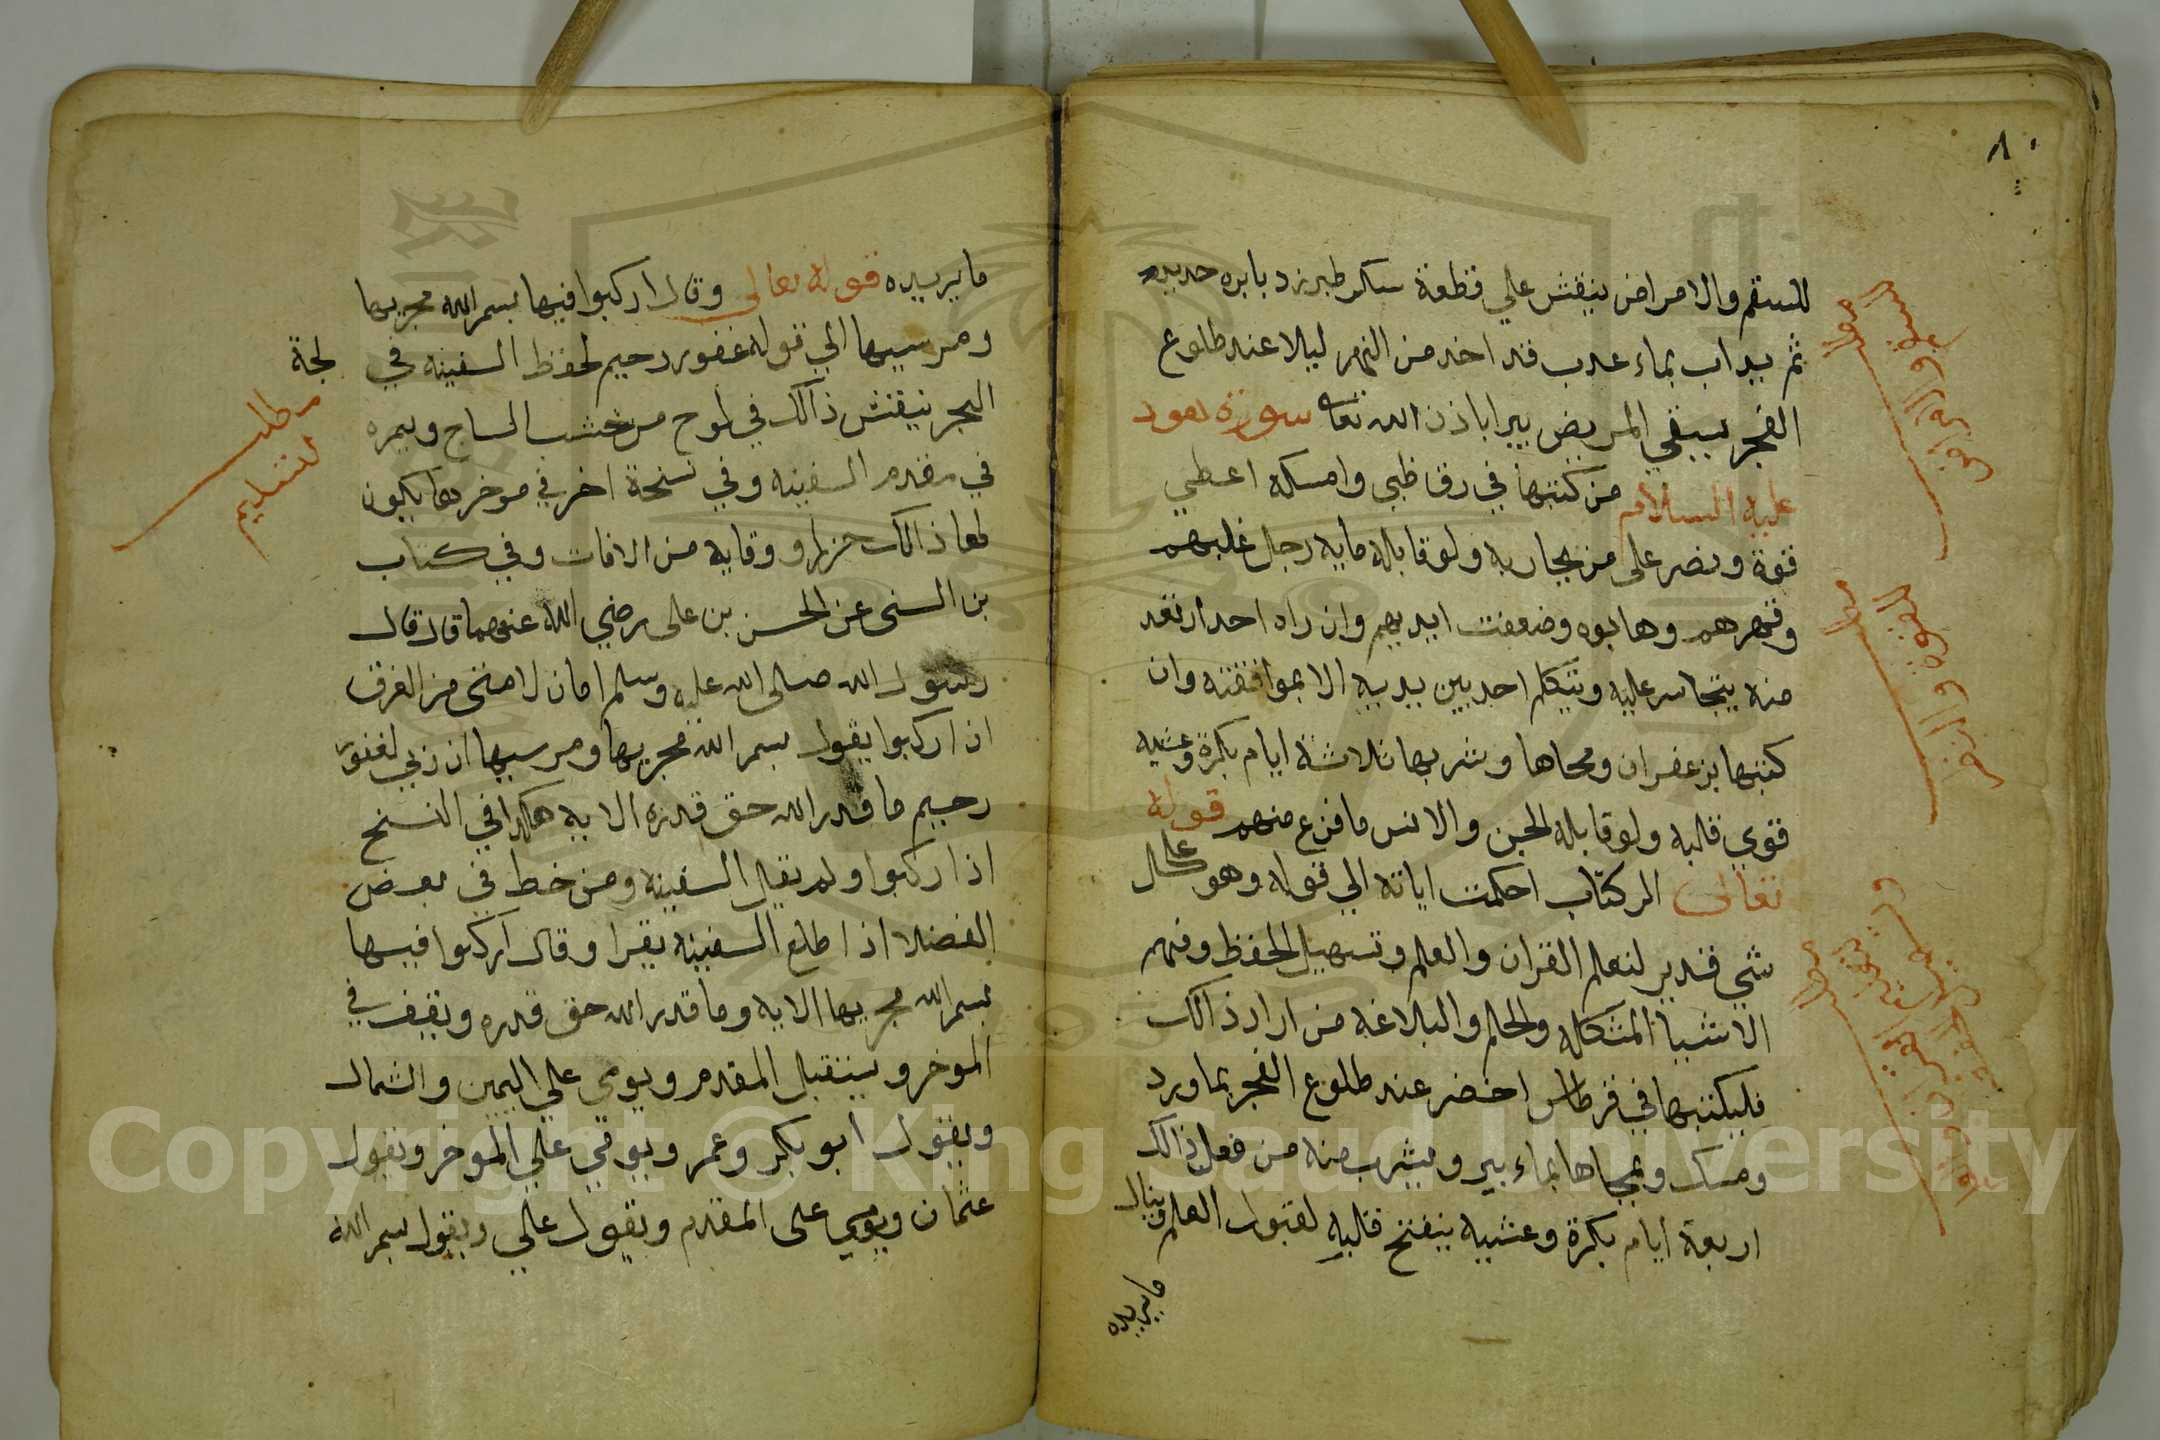 ٨٠
للسقم والامراض ينقش علي قطعة سكر طبرزد بابره حديد
ثم يداب بماء عدب قد اخد من النهر ليلا عند طلوع
الفجر يسقي المريض يبرا باذن الله تعا سورة هود
عليه السلام من كتبها في رق ظبي وامسكه اعطي
قوة ونصر على من يحاربه ولو قابله مايه رجل غلبهم
وقهرهم وهابوه وضعفت ايديهم وان راه احد ارتعد
منه يتجاسر عليه ويتكلم احد بين يديه الا بموافقته وان
كتبها بزعفران ومحاها وشربها ثلاثة ايام بكرة وعشيه
قوي قلبه ولو قابله الجن والانس ما فزع منهم قوله
تعالى الر كتاب احكمت اياته الي قوله وهو على كل
شي قدير لتعلم القران والعلم وتسهيل الحفظ وفهم
الاشيا المشكله والحلم والبلاغه من اراد ذالك
فليكتبها في قرطاس اخضر عند طلوع الفجر بماورد
ومسك ويمحاها بماء بير ويشرب منه من فعل ذالك
اربعة ايام بكرة وعشيه ينفتح قلبه لقبول العلم وينال
ما يريده
مطلب
للسقم والامراض
مطلب
للقوة والنصر
مطلب
ما يريده قوله تعالى وقال اركبوا فيها بسم الله مجريها
ومرسيها الي قوله غفور رحيم لحفظ السفينه في
لجة
البحر ينقش ذالك في لوح من خشب الساج ويسمره
في مقدم السفينه وفي نسخة اخر في موخرها يكون
لها ذالك حرزا ووقايه من الافات وفي كتاب
بن السنى عن الحسن بن على رضي الله عنهما قال قال
رسول الله صلى الله عليه وسلم امان لامتى من الغرق
اذا ركبوا يقول بسم الله مجريها ومرسيها ان ربي لغفور
رحيم ما قدر الله حق قدره الايه هكدا في النسخ
اذا ركبوا ولم يقل السفينه ومن خط في بعض
الفضلا اذا طلع السفينه يقرا وقال اركبوا فيها
بسم الله مجريها الايه وما قدر الله حق قدره ويقف في
الموخر ويستقبل المقدم ويومي علي اليمين والشمال
ويقول ابو بكر وعمر ويومي علي الموخر ويقول
عثمان ويومي على المقدم ويقول علي ويقول بسم الله
مطلب